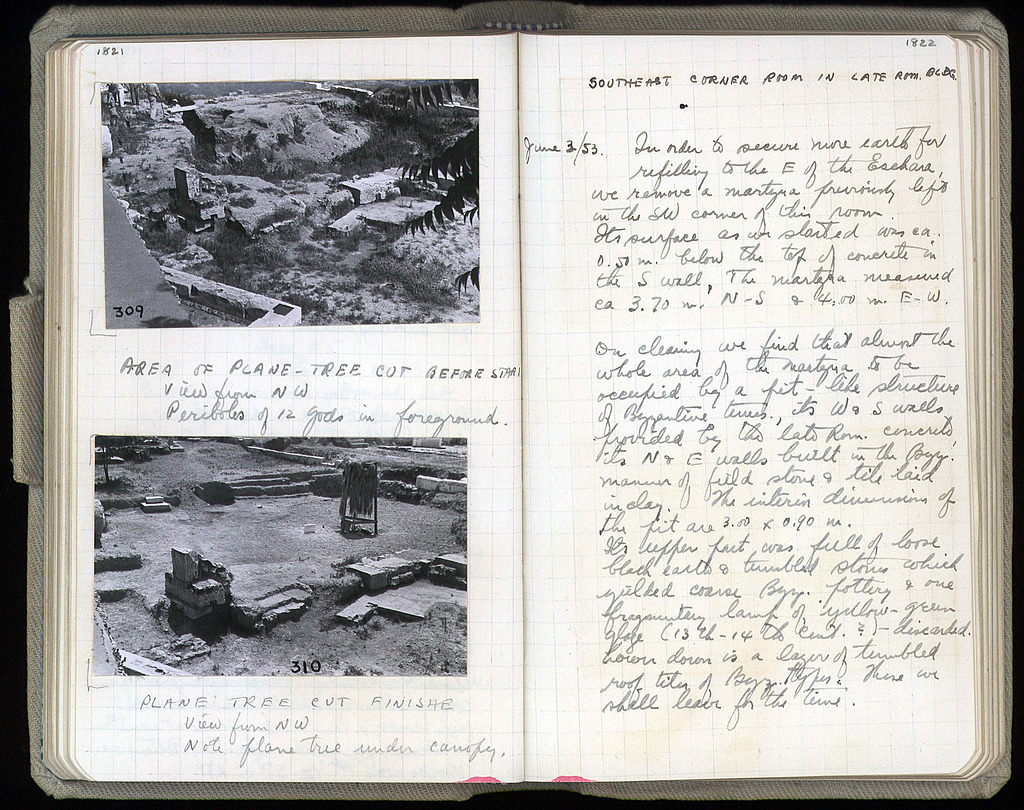 1821
309
AREA OF PLANE-TREE CUT BEFORE START
View from NW
Peribolos of 12 gods in foreground.
310
PLANE TREE CUT FINISHE
View from NW
Note plane tree under canopy.
1822
SOUTHEAST CORNER ROOM IN LATE ROM. BLDG.
June 3/53. In order to secure more earth for
refilling to the E of the Eschara,
we remove a martyra previously left
in the SW corner of this room.
Its surface as we started was ca.
0.50 m. below the top of concrete in
the S wall. The martyra measured
ca 3.70 m. N-S & 4.00 m. E-W.
On clearing we find that almost the
whole area of the martyra to be
occupied by a pit-like structure
of Byzantine times, its W & S walls
provided by the late Rom. concrete,
its N & E walls built in the Byz.
manner of field stone & tile laid
in clay. The interior dimensions of
the pit are 3.00 x 0.90 m.
Its upper part was full of loose
black earth & tumbled stones which
yielded coarse Byz. pottery & one
fragmentary lamp of yellow-green
glaze (13th-14th cent. ?) - discarded.
Lower down is a layer of tumbled
roof tiles of Byz. types. These we
shall leave for the time.